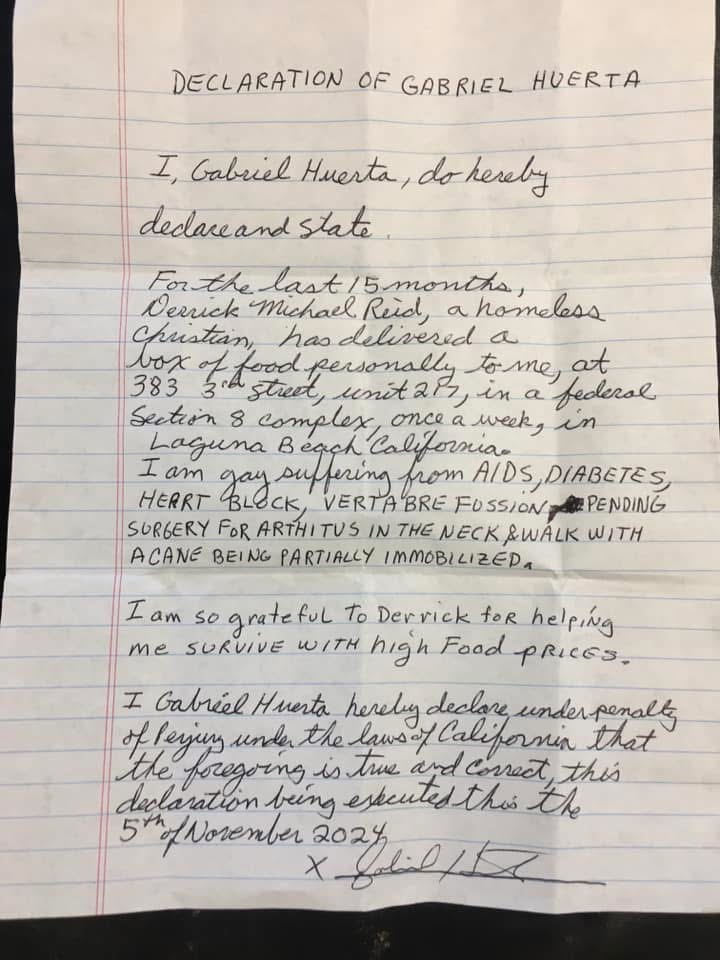 DECLARATION OF GABRIEL HUERTA
I, Gabriel Huerta, do hereby
declare and state.
For the last 15 months,
Derrick Michael Reid, a homeless
Christian, has delivered a
box of food personally to me, at
383 3rd street, unit 217, in a federal
Section 8 complex, once a week, in
Laguna Beach California.
I am gay suffering from AIDS, DIABETES,
HEART BLOCK, VERTABRE FUSSION, PENDING
SURGERY FOR ARTHITUS IN THE NECK & WALK WITH
A CANE BEING PARTIALLY IMMOBILIZED.
I am so grateful To Derrick foR helping
me SURVIVE WITH high Food PRICES.
I Gabriel Huerta hereby declare under penalty
of Perjury under the laws of California that
the foregoing is true and correct, this
declaration being executed this the
5th of November 2024
X